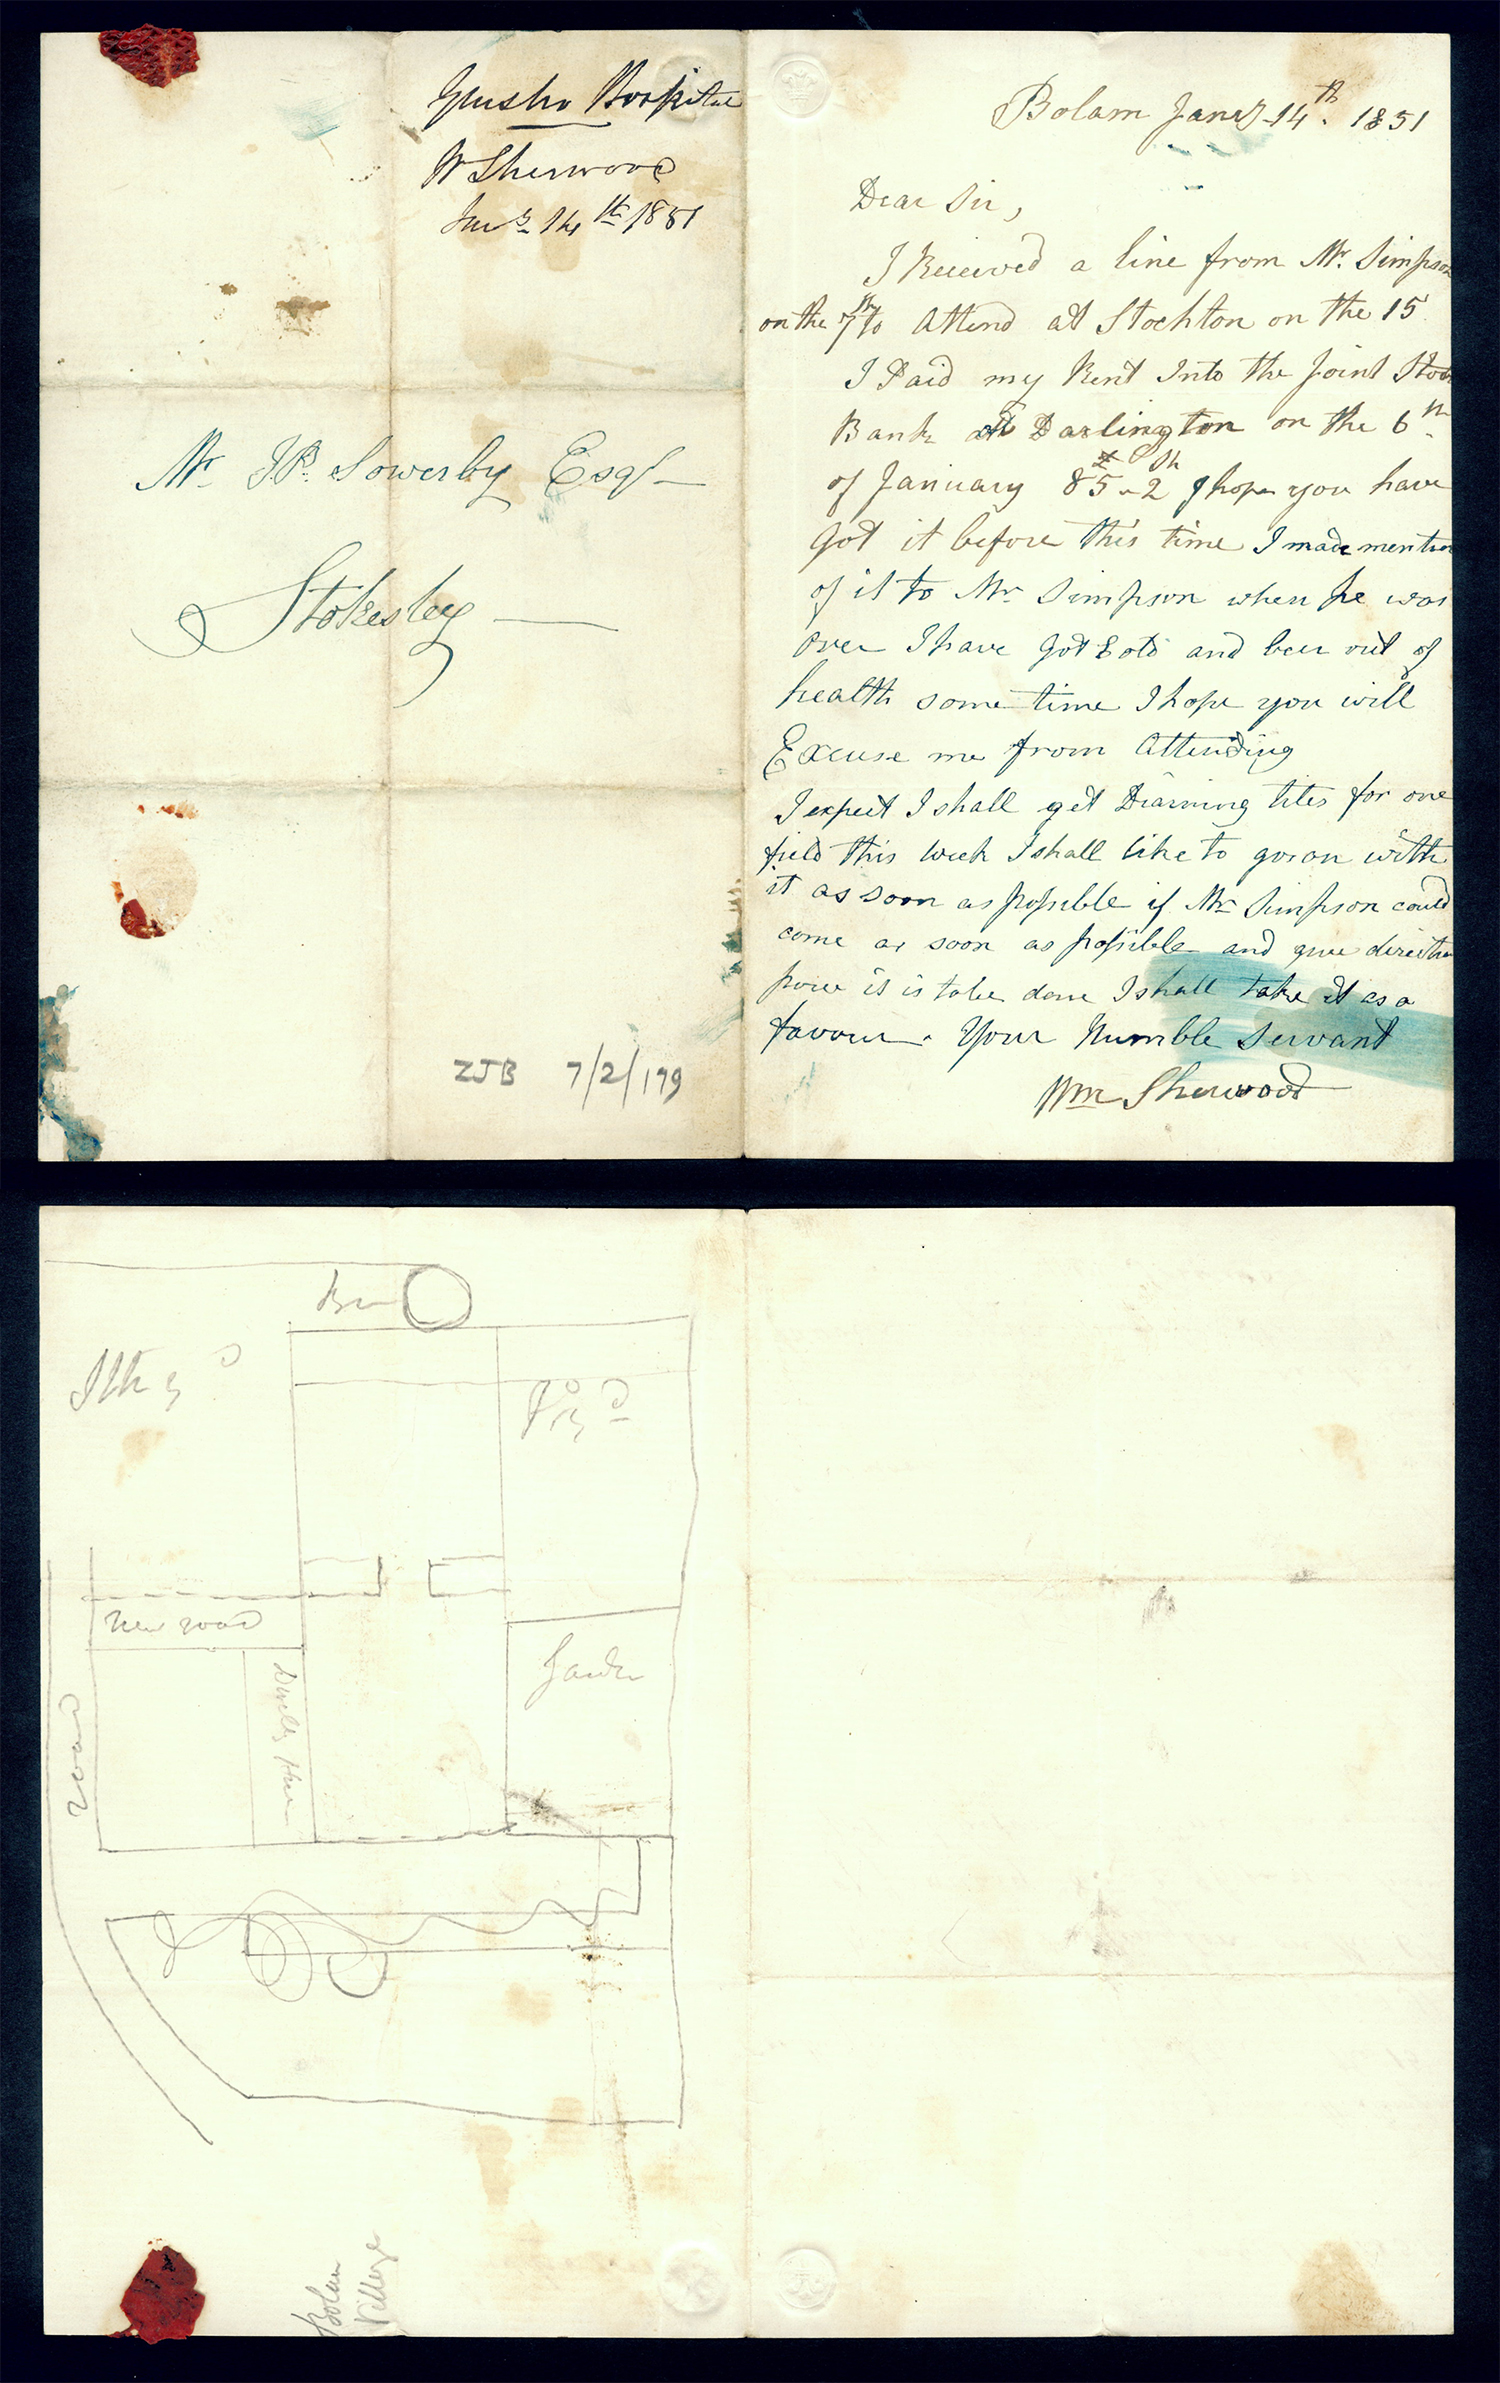 Hospital
W Sherwood
Jany. 14th 1851
Mr. J.P. Sowerby Esqr
Stokesley
ZJB 7/2/179
Bolam Jany 14th. 1851
Dear Sir,
I Received a line from Mr. Simpson
on the 7th to Attend at Stockton on the 15
I Paid my Rent Into the Joint Stock
Bank at Darlington on the 6th
of January 85£-2sh I hope you have
Got it before this time I made mention
of it to Mr Simpson when he was
over I have Got Cold and been out of
health some time I hope you will
Excuse me from Attending
I expect I shall get Draining tiles for one
field this week I shall like to go on with
it as soon as possible if Mr Simpson could
come as soon as possible and give direction
how it is to be done I shall take it as a
favour. Your Humble Servant
Wm Sherwood
New road
road
Garden
Bolam
Village